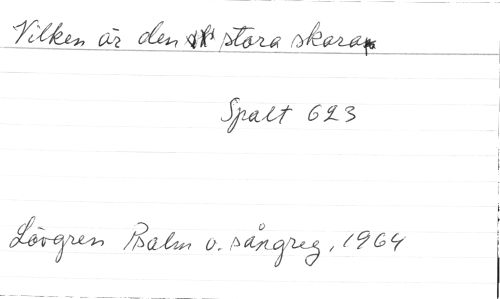 Vilken är den stora skara
Spalt 623
Lövgren Psalm o. sångreg, 1964